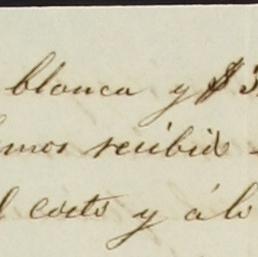 blanca y $ 3
mos recibid
l costo y á lo